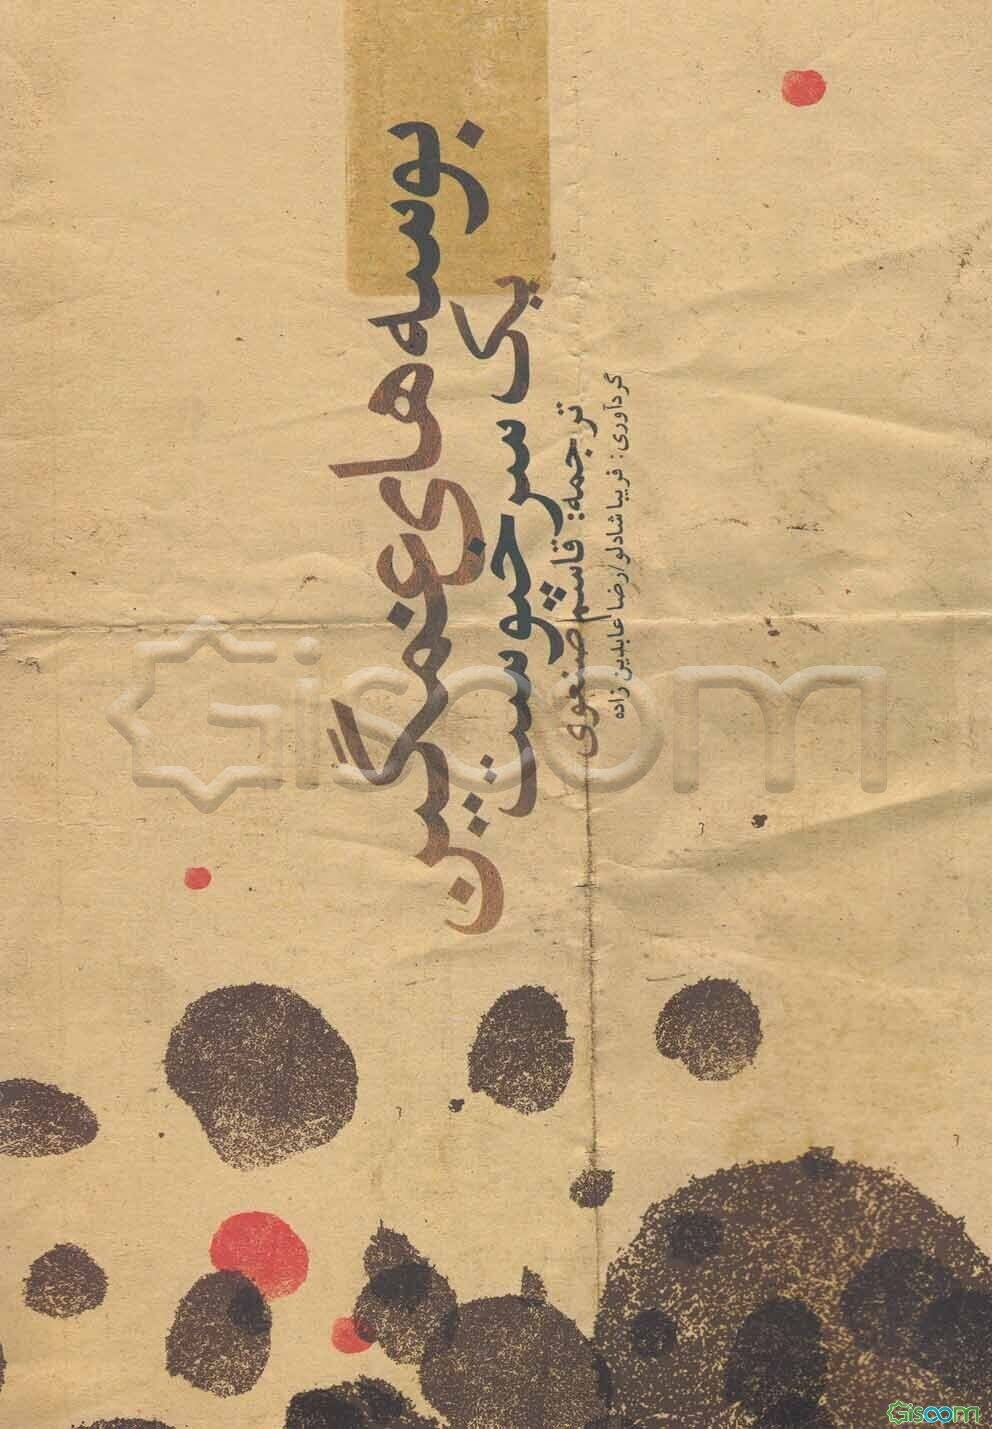 بوسه های غمگین
یک سرخپوست
ترجمه: قاسم صنعوی
گردآوری: فریبا شادلو/رضا عابدین زاده
Giscom
Giscom